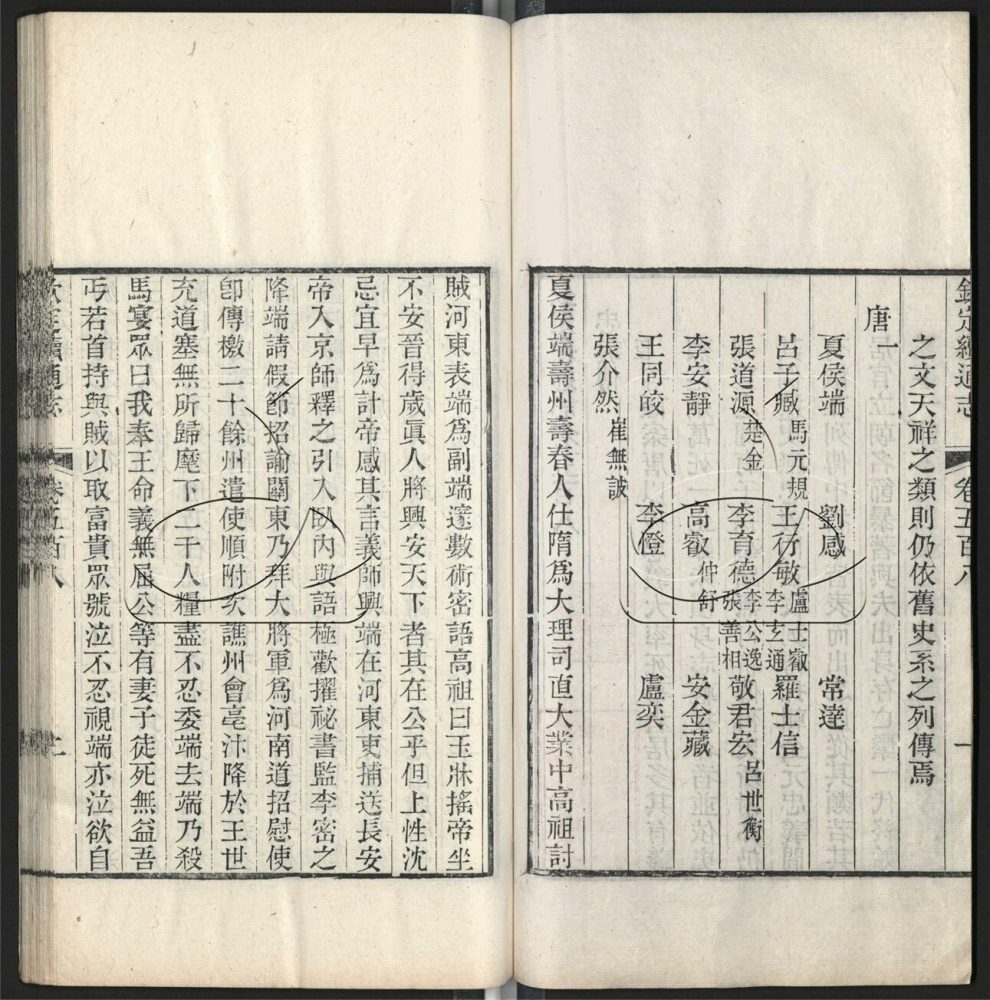 欽定續通志　卷五百八　一
之文天祥之類則仍依舊史系之列傳焉
唐一
夏侯端　劉感　常達
呂子臧 馬元規　王行敏 盧士叡 李玄通　羅士信
張道源 楚金　李育德 李公逸 張善相　敬君宏 呂世衡
李安靜　高叡 仲舒　安金藏
王同皎　李憕　盧奕
張介然 崔無詖
夏侯端壽州壽春人仕隋爲大理司直大業中高祖討
賊河東表端爲副端邃數術密語高祖曰玉牀搖帝坐
不安晉得歲眞人將興安天下者其在公乎但上性沈
忌宜早爲計帝感其言義師興端在河東吏捕送長安
帝入京師釋之引入臥內與語極歡擢祕書監李密之
降端請假節招諭關東乃拜大將軍爲河南道招慰使
卽傳檄二十餘州遣使順附次譙州會亳汴降於王世
充道塞無所歸麾下二千人糧盡不忍委端去端乃殺
馬宴眾曰我奉王命義無屈公等有妻子徒死無益吾
丐若首持與賊以取富貴眾號泣不忍視端亦泣欲自
欽定續通志　卷五百八